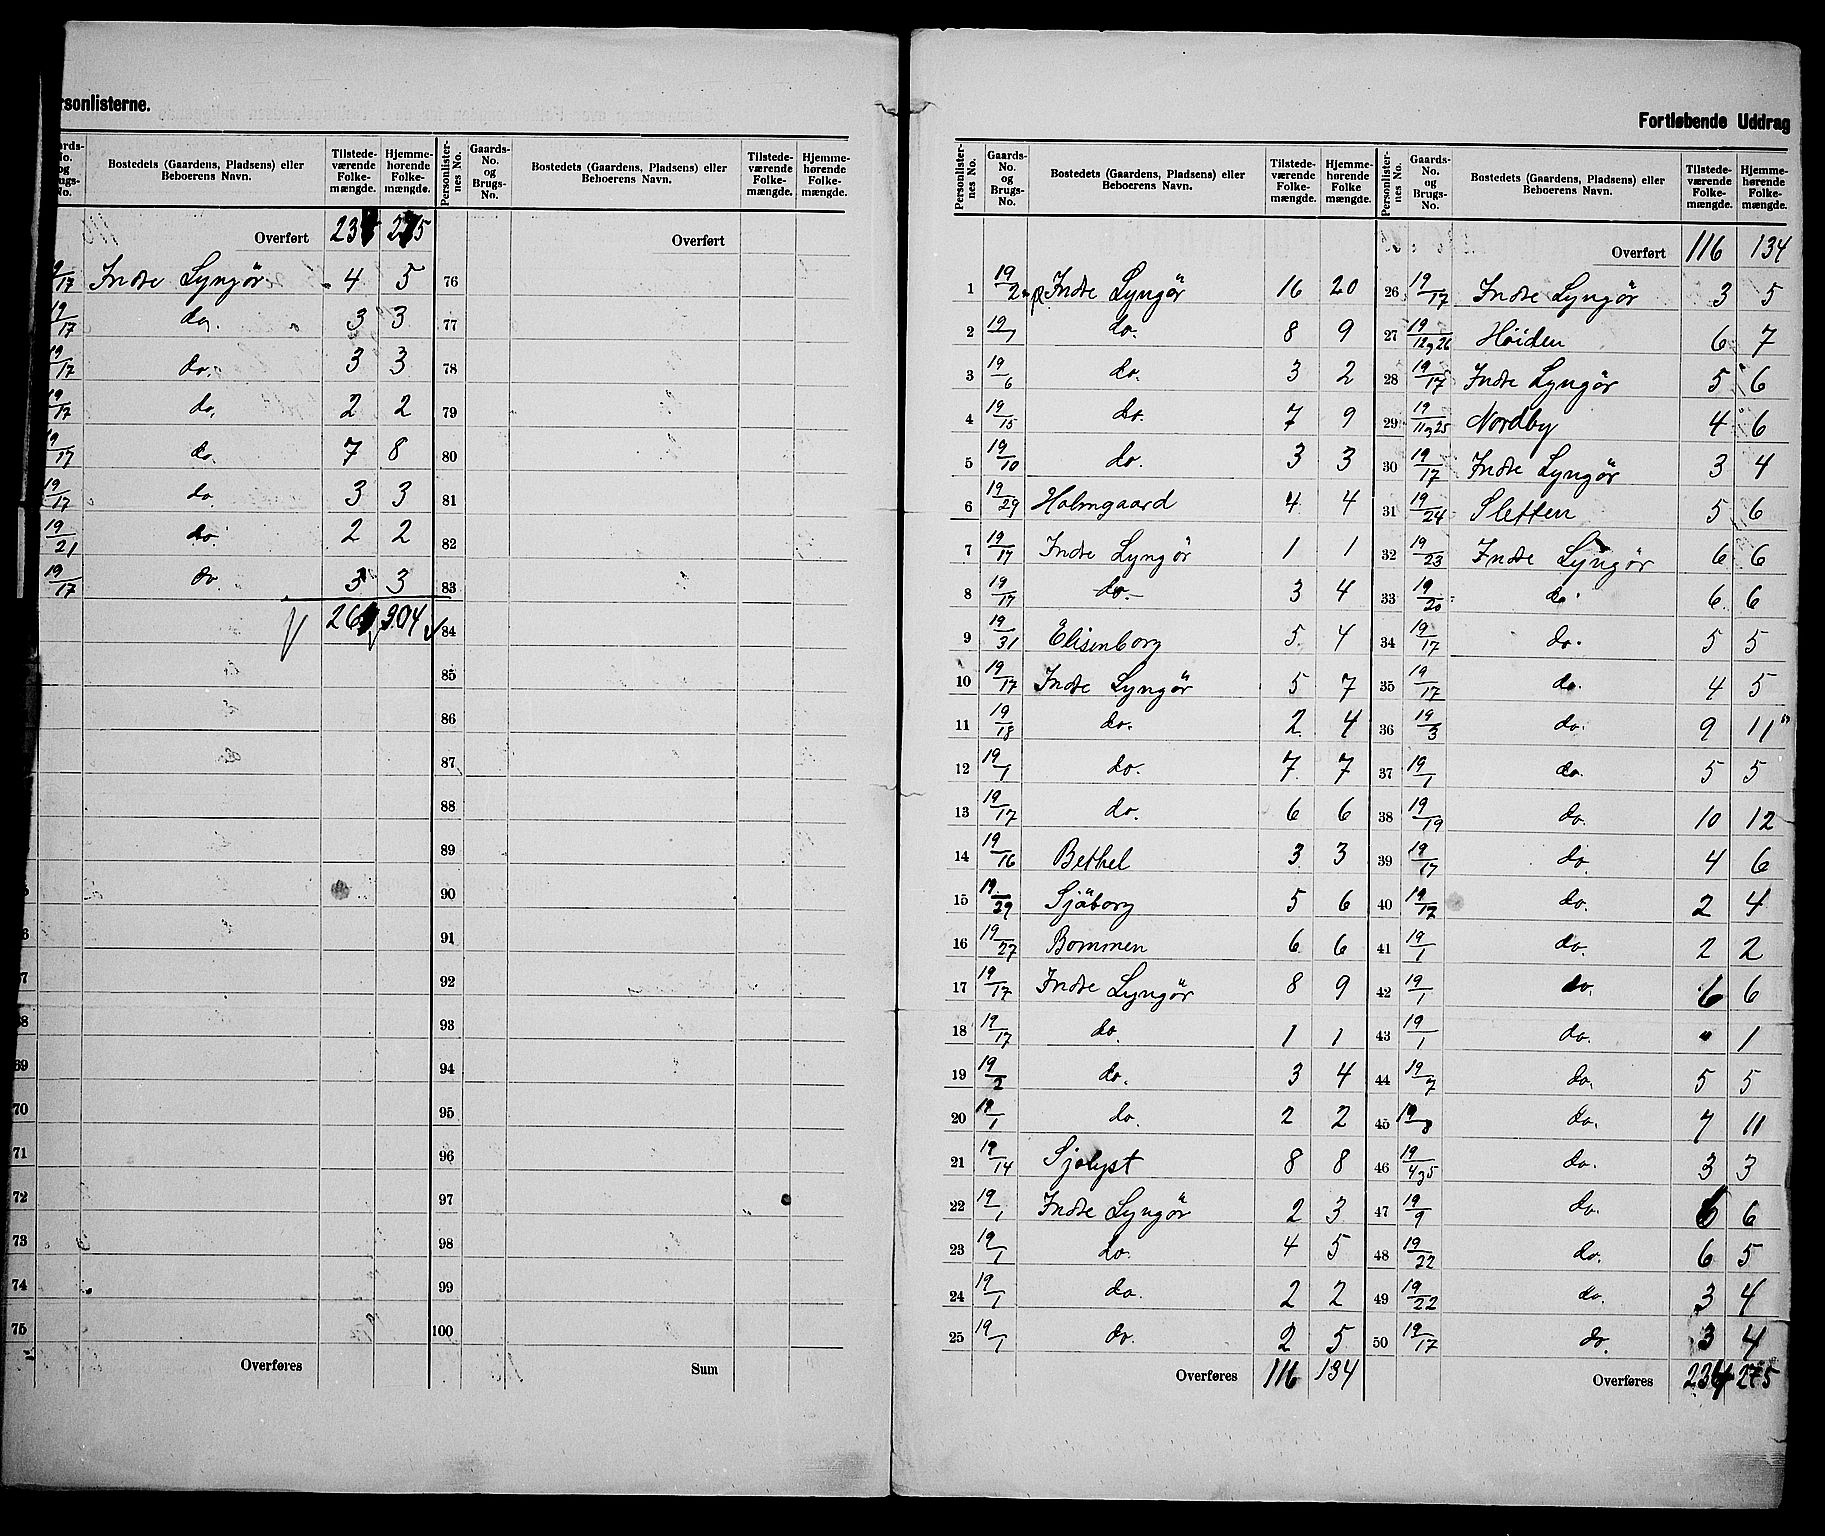 rsonlisterne.
ards-No. og ugs-No. | Bostedets (Gaardens, Pladsens) eller Beboerens Navn. | Tilstede-værende Folke-mængde. | Hjemme-hørende Folke-mængde. | Personlister-nes No. | Gaards-No. og Brugs-No. | Bostedets (Gaardens, Pladsens) eller Beboerens Navn. | Tilstede-værende Folke-mængde. | Hjemme-hørende Folke-mængde.
Overført 275 Overført
19/17 Indre Lyngör 4 5 76
19/17 do. 3 3 77
19/17 do. 3 3 78
19/17 do. 2 2 79
19/17 do 7 8 80
19/17 do 3 3 81
19/21 do 2 2 82
19/17 do 3 3 83
304 84
85
86
87
88
89
90
91
92
93
69 94
70 95
71 96
72 97
73 98
74 99
75 100
Overføres Sum
Fortløbende Uddrag
Personlister-nes No. | Gaards-No. og Brugs-No. | Bostedets (Gaardens, Pladsens) eller Beboerens Navn. | Tilstede-værende Folke-mængde. | Hjemme-hørende Folke-mængde. | Personlister-nes No. | Gaards-No. og Brugs-No. | Bostedets (Gaardens, Pladsens) eller Beboerens Navn. | Tilstede-værende Folke-mængde. | Hjemme-hørende Folke-mængde.
Overført 116 134
1 19/2 Indre Lyngör 16 20 26 19/17 Indre Lyngör 3 5
2 19/1 do. 8 9 27 19/12 og 26 Höiden 6 7
3 19/6 do. 3 2 28 19/17 Indre Lyngör 5 6
4 19/15 do. 7 9 29 19/11 og 25 Nordby 4 6
5 19/10 do. 3 3 30 19/17 Indre Lyngör 3 4
6 19/29 Holmgaard 4 4 31 19/24 Sletten 5 6
7 19/17 Indre Lyngör 1 1 32 19/23 Indre Lyngör 6 6
8 19/17 do. 3 4 33 19/20 do 6 6
9 19/31 Elisenborg 5 4 34 19/17 do. 5 5
10 19/17 Indre Lyngör 5 7 35 19/17 do. 4 5
11 19/18 do. 2 4 36 19/3 do. 9 11
12 19/1 do. 7 7 37 19/1 do. 5 5
13 19/17 do. 6 6 38 19/19 do. 10 12
14 19/16 Bethel 3 3 39 19/17 do. 4 6
15 19/29 Sjöborg 5 6 40 19/17 do. 2 4
16 19/27 Bommen 6 6 41 19/1 do. 2 2
17 19/17 Indre Lyngör 8 9 42 19/1 do. 6 6
18 19/17 do. 1 1 43 19/1 do. " 1
19 19/2 do. 3 4 44 19/7 do. 5 5
20 19/1 do. 2 2 45 19/8 do. 7 11
21 19/14 Sjölyst 8 8 46 19/4 og 5 do. 3 3
22 19/1 Indre Lyngör 2 3 47 19/9 do. 6
23 19/1 do. 4 5 48 19/22 do. 6 5
24 19/1 do. 2 2 49 19/22 do. 3 4
25 19/1 do. 2 5 50 19/17 do. 3 4
Overføres 116 134 Overføres 275